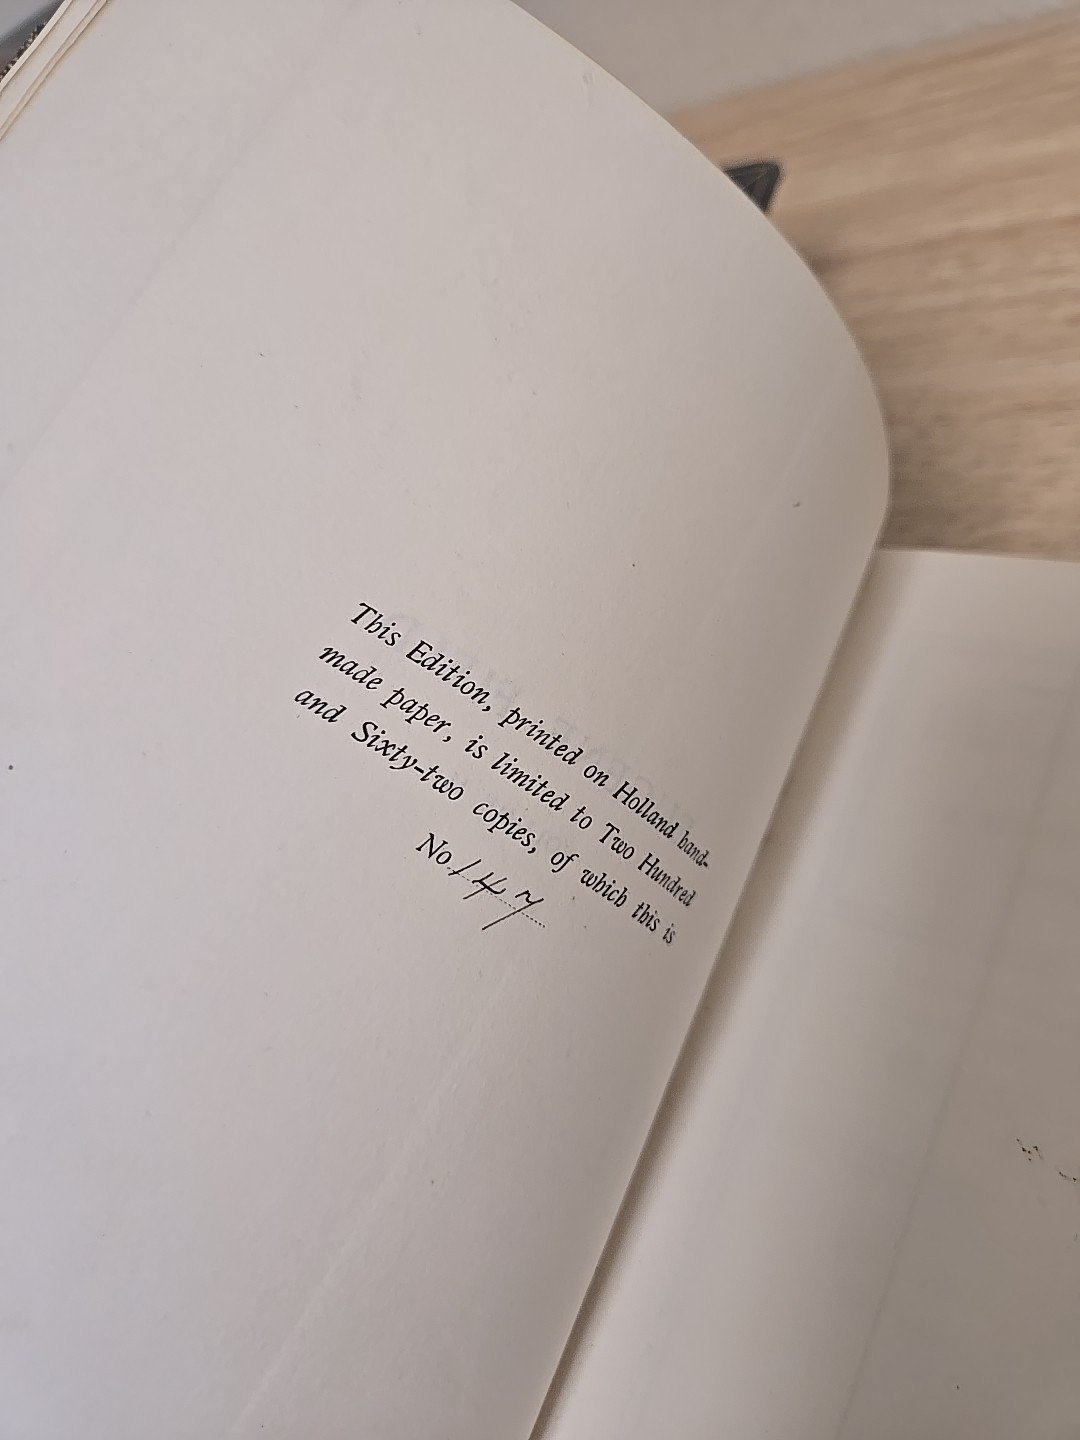 This Edition, printed on Holland hand-
made paper, is limited to Two Hundred
and Sixty-two copies, of which this is
No 147